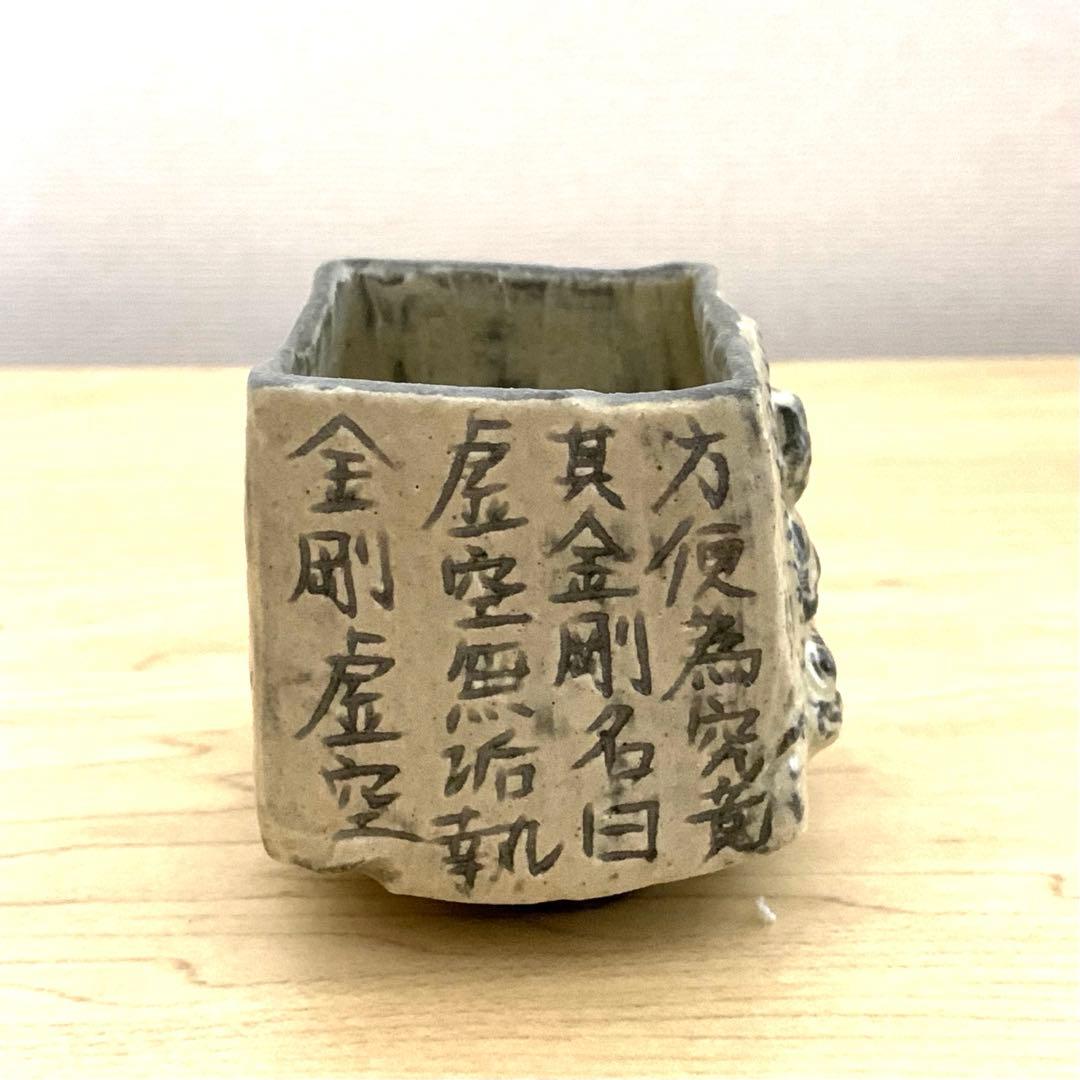 方便為究竟
其金剛名曰
虚空無垢執
金剛虚空